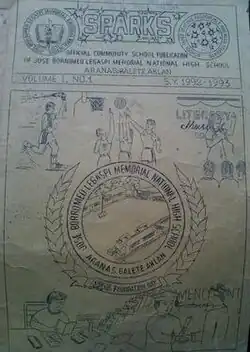 SPARKS
OFFICIAL COMMUNITY SCHOOL PUBLICATION
IN JOSE BORROMEO LEGASPI MEMORIAL NATIONAL HIGH SCHOOL
ARANAS, BALETE, AKLAN
VOLUME I, NO.1
S.Y. 1992-1993
LITERARY
JOSE BORROMEO LEGASPI MEMORIAL NATIONAL HIGH SCHOOL
ARANAS, BALETE, AKLAN
FOUNDATION DAY